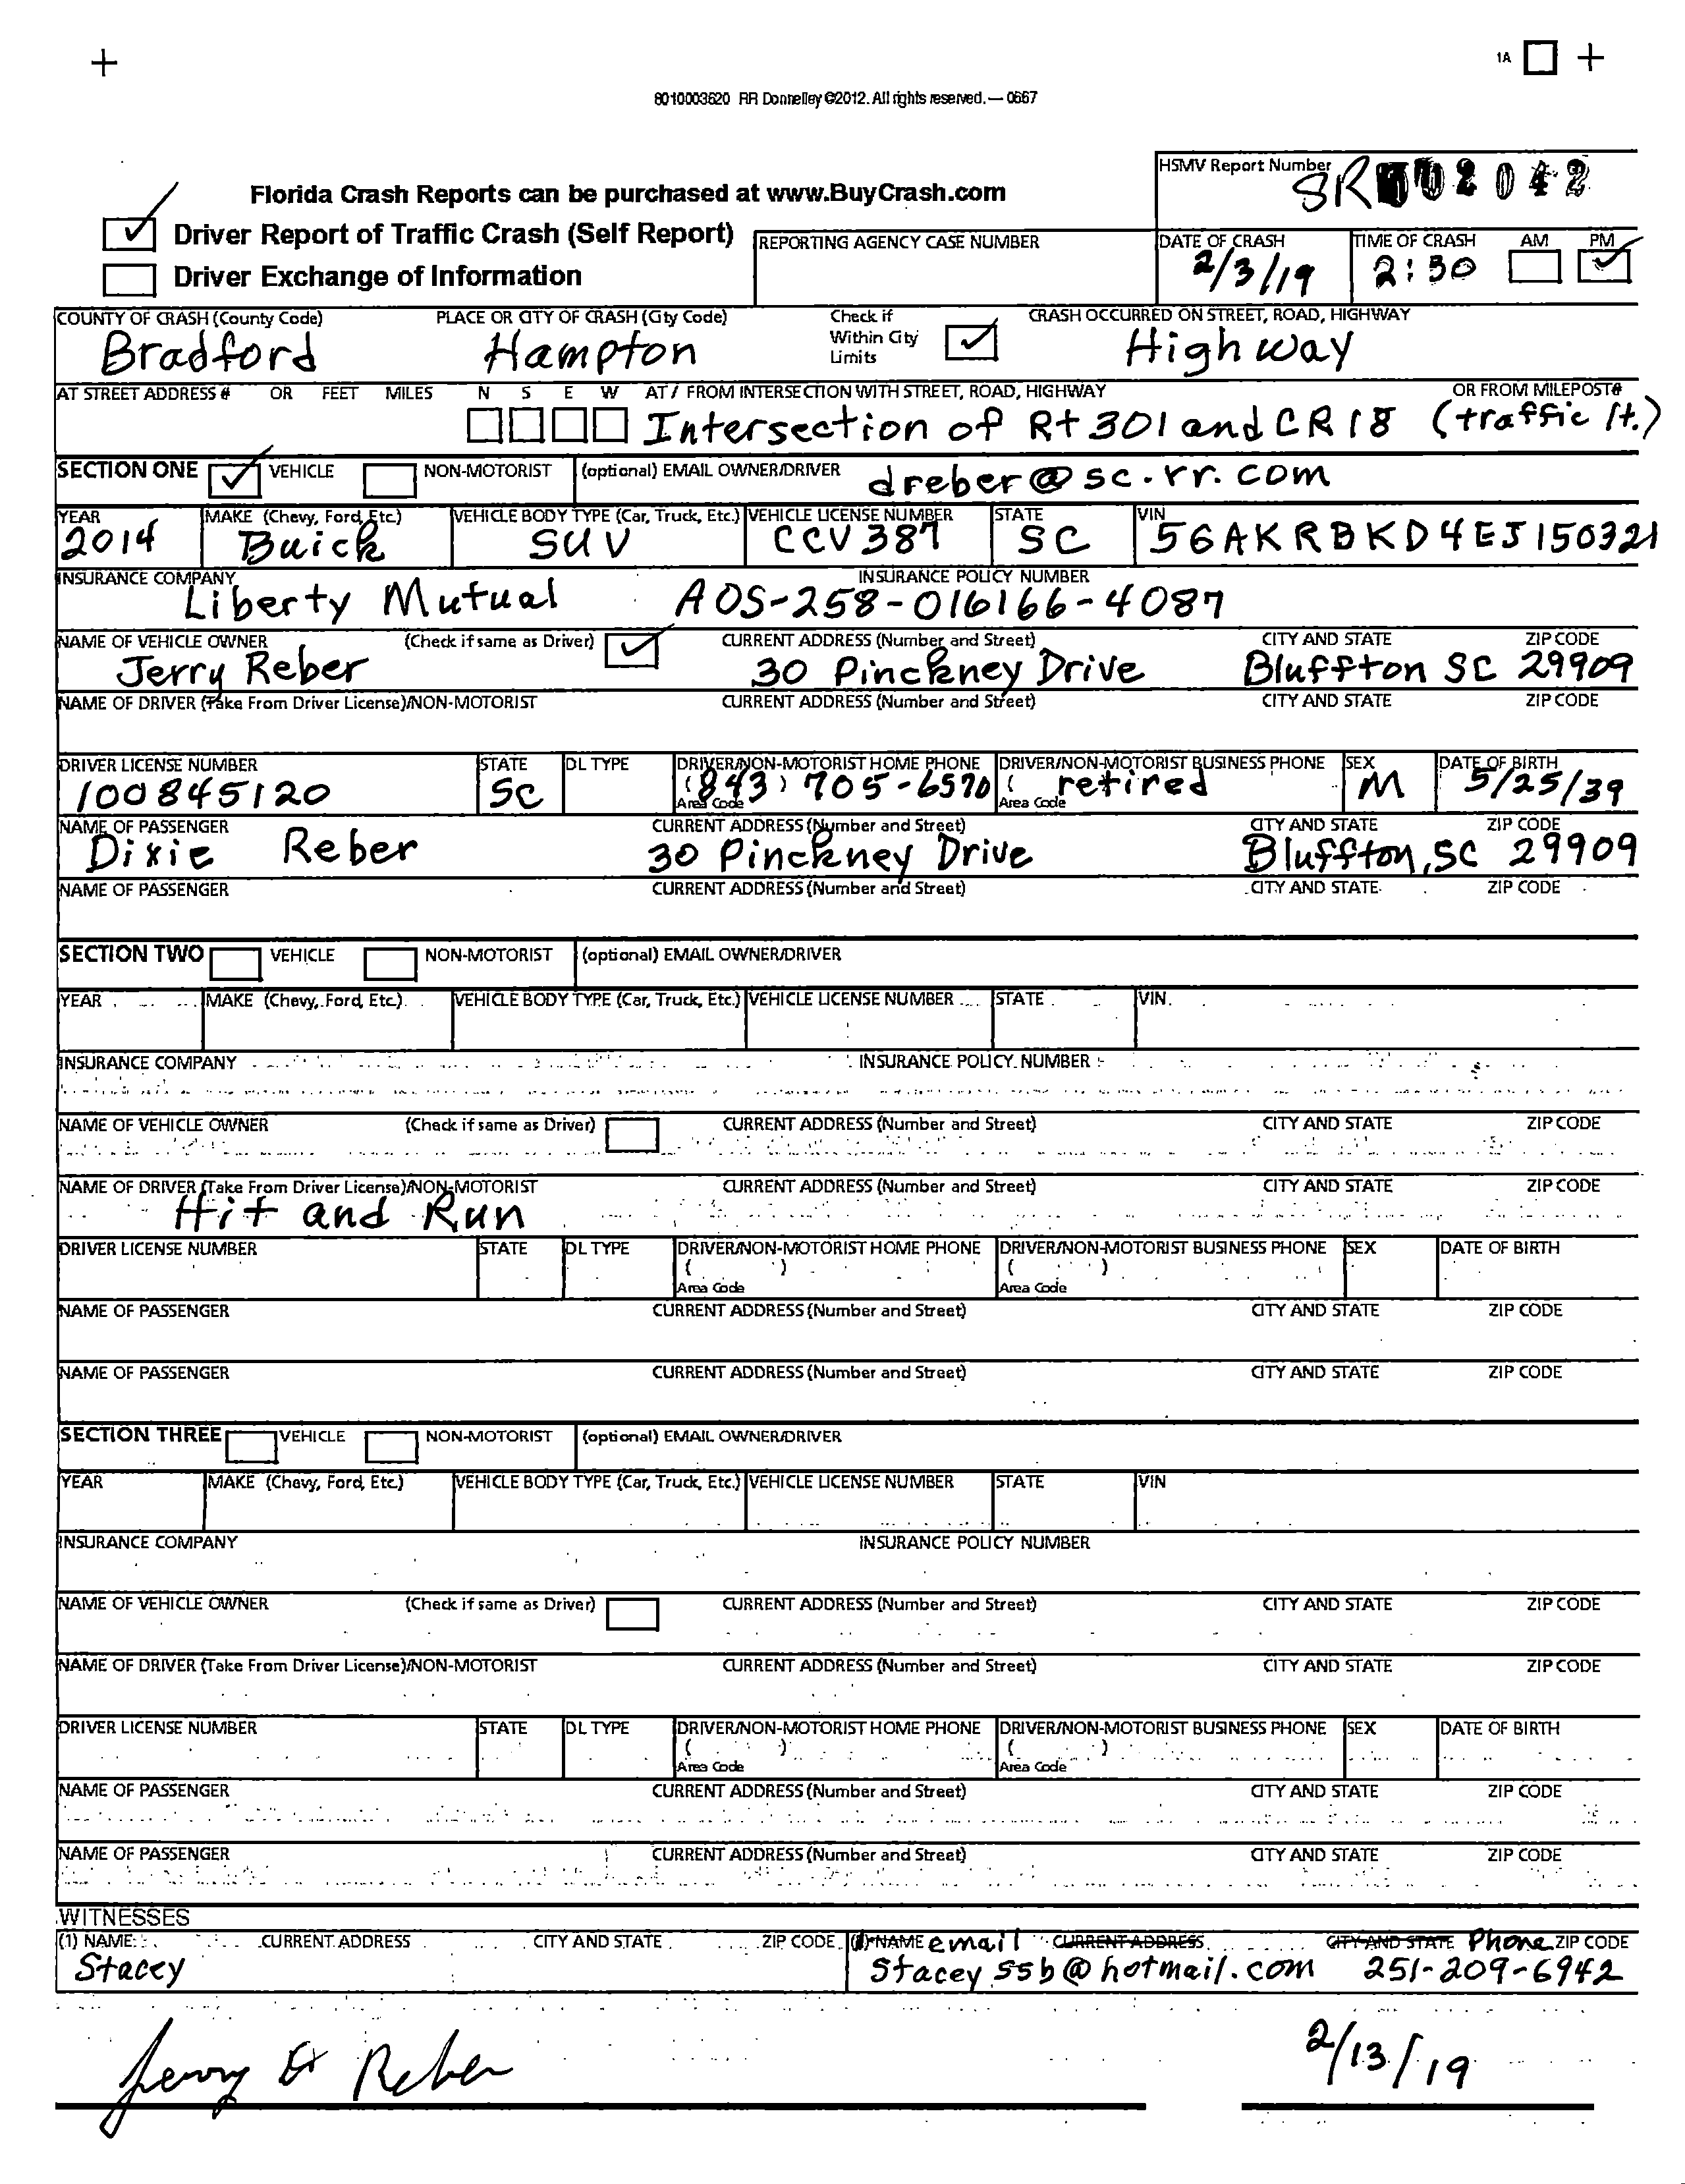 1A
8010003620 RR Donnelley ©2012. All rights reserved. — 0667
HSMV Report Number SR 2042
Florida Crash Reports can be purchased at www.BuyCrash.com
Driver Report of Traffic Crash (Self Report)
Driver Exchange of Information
REPORTING AGENCY CASE NUMBER
DATE OF CRASH TIME OF CRASH AM PM
2/3/19 2:30
COUNTY OF CRASH (County Code) PLACE OR CITY OF CRASH (City Code) Check if Within City Limits CRASH OCCURRED ON STREET, ROAD, HIGHWAY
Bradford Hampton Highway
AT STREET ADDRESS # OR FEET MILES N S E W AT / FROM INTERSECTION WITH STREET, ROAD, HIGHWAY OR FROM MILEPOST#
Intersection of Rt 301 and CR 18 (traffic lt.)
SECTION ONE VEHICLE NON-MOTORIST (optional) EMAIL OWNER/DRIVER dreber@sc.rr.com
YEAR MAKE (Chevy, Ford, Etc.) VEHICLE BODY TYPE (Car, Truck, Etc.) VEHICLE LICENSE NUMBER STATE VIN
2014 Buick SUV CCV387 SC 5GAKRBKD4EJ150321
INSURANCE COMPANY INSURANCE POLICY NUMBER
Liberty Mutual AOS-258-016166-4087
NAME OF VEHICLE OWNER (Check if same as Driver) CURRENT ADDRESS (Number and Street) CITY AND STATE ZIP CODE
Jerry Reber 30 Pinckney Drive Bluffton SC 29909
NAME OF DRIVER (Take From Driver License)/NON-MOTORIST CURRENT ADDRESS (Number and Street) CITY AND STATE ZIP CODE
DRIVER LICENSE NUMBER STATE DL TYPE DRIVER/NON-MOTORIST HOME PHONE DRIVER/NON-MOTORIST BUSINESS PHONE SEX DATE OF BIRTH
100845120 SC (843) 705-6570 ( retired M 5/25/39
Area Code Area Code
NAME OF PASSENGER CURRENT ADDRESS (Number and Street) CITY AND STATE ZIP CODE
Dixie Reber 30 Pinckney Drive Bluffton, SC 29909
NAME OF PASSENGER CURRENT ADDRESS (Number and Street) CITY AND STATE ZIP CODE
SECTION TWO VEHICLE NON-MOTORIST (optional) EMAIL OWNER/DRIVER
YEAR MAKE (Chevy, Ford, Etc.) VEHICLE BODY TYPE (Car, Truck, Etc.) VEHICLE LICENSE NUMBER STATE VIN
INSURANCE COMPANY INSURANCE POLICY NUMBER
NAME OF VEHICLE OWNER (Check if same as Driver) CURRENT ADDRESS (Number and Street) CITY AND STATE ZIP CODE
NAME OF DRIVER (Take From Driver License)/NON-MOTORIST CURRENT ADDRESS (Number and Street) CITY AND STATE ZIP CODE
Hit and Run
DRIVER LICENSE NUMBER STATE DL TYPE DRIVER/NON-MOTORIST HOME PHONE DRIVER/NON-MOTORIST BUSINESS PHONE SEX DATE OF BIRTH
( ) ( )
Area Code Area Code
NAME OF PASSENGER CURRENT ADDRESS (Number and Street) CITY AND STATE ZIP CODE
NAME OF PASSENGER CURRENT ADDRESS (Number and Street) CITY AND STATE ZIP CODE
SECTION THREE VEHICLE NON-MOTORIST (optional) EMAIL OWNER/DRIVER
YEAR MAKE (Chevy, Ford, Etc.) VEHICLE BODY TYPE (Car, Truck, Etc.) VEHICLE LICENSE NUMBER STATE VIN
INSURANCE COMPANY INSURANCE POLICY NUMBER
NAME OF VEHICLE OWNER (Check if same as Driver) CURRENT ADDRESS (Number and Street) CITY AND STATE ZIP CODE
NAME OF DRIVER (Take From Driver License)/NON-MOTORIST CURRENT ADDRESS (Number and Street) CITY AND STATE ZIP CODE
DRIVER LICENSE NUMBER STATE DL TYPE DRIVER/NON-MOTORIST HOME PHONE DRIVER/NON-MOTORIST BUSINESS PHONE SEX DATE OF BIRTH
( ) ( )
Area Code Area Code
NAME OF PASSENGER CURRENT ADDRESS (Number and Street) CITY AND STATE ZIP CODE
NAME OF PASSENGER CURRENT ADDRESS (Number and Street) CITY AND STATE ZIP CODE
WITNESSES
(1) NAME CURRENT ADDRESS CITY AND STATE ZIP CODE NAME email CURRENT ADDRESS CITY AND STATE Phone ZIP CODE
Stacey Stacey.ssb@hotmail.com 251-209-6942
Jerry Reber 2/13/19